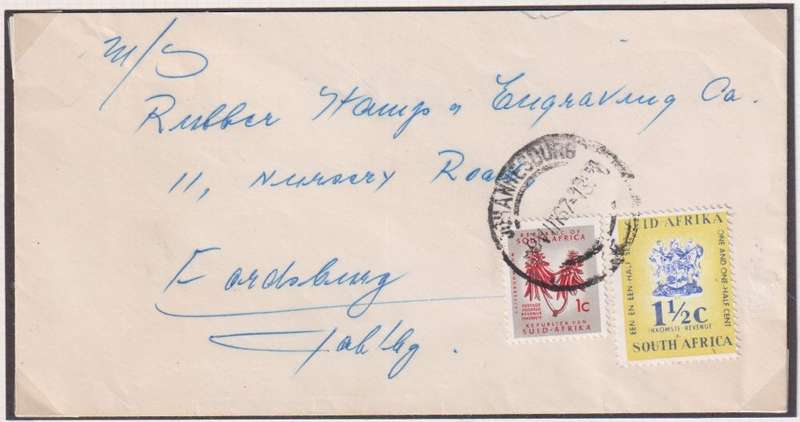 M/S
Rubber Stamp & Engraving Co.
11, Nursery Road,
Fordsburg
Jahbg.
JOHANNESBURG
REPUBLIC OF
SOUTH AFRICA
1c
POSTAGE
REVENUE
REPUBLIEK VAN
SUID-AFRIKA
UID AFRIKA
EEN EN EEN-HALF
ONE AND ONE-HALF CENT
1½c
INKOMSTE · REVENUE
SOUTH AFRICA